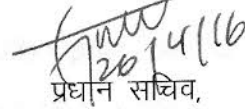 20/4/16
प्रधान सचिव,